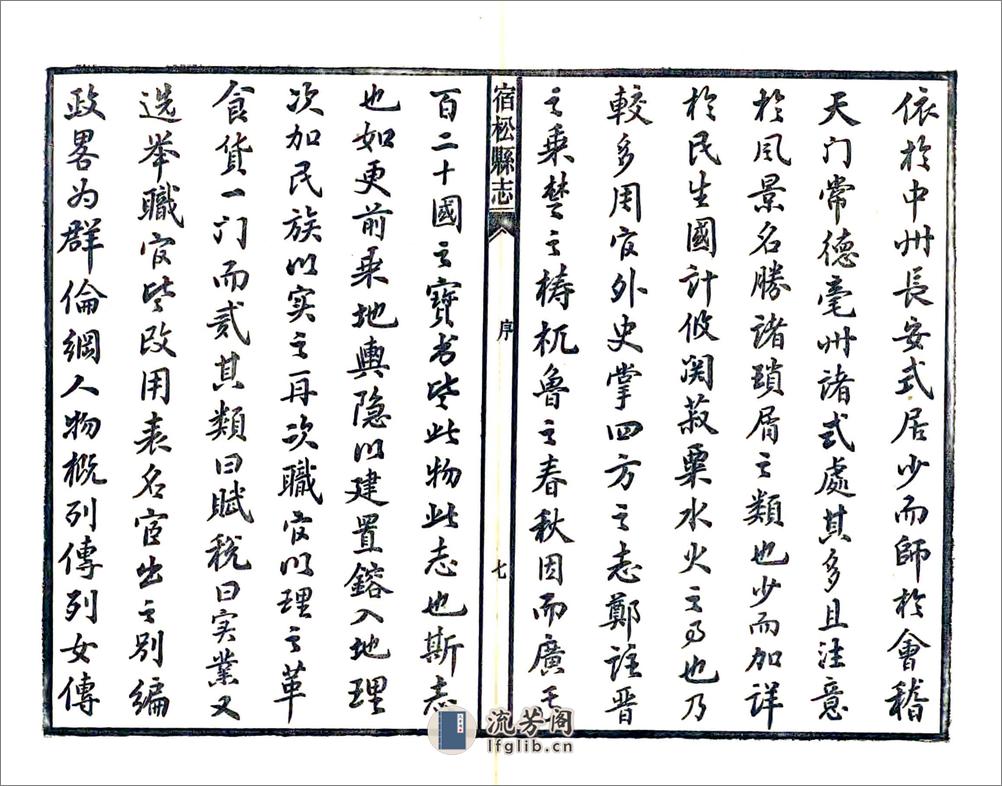 依於中州長安式居少而師於會稽
天门常德亳州諸式處其多且注意
於風景名勝諸瑣屑之類也少而加详
於民生國計攸関菽粟水火之为也乃
較多用官外史掌四方之志鄭註晋
之乘楚之梼杌魯之春秋因而廣其
宿松縣志
序
七
百二十國之寶书皆此物此志也斯志
也如更前乘地輿隐以建置鎔入地理
次加民族以实之再次職官以理之革
食货一门而貳其類曰賦税曰实業又
选举職官皆改用表名宦出之别编
政畧为群倫綱人物概列傳列女傳
流芳阁
lfglib.cn